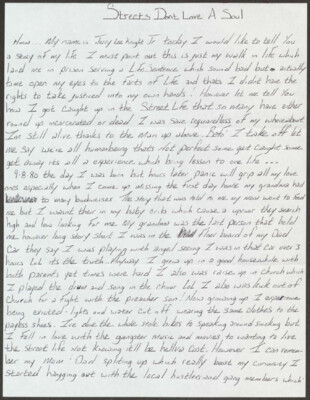 Streets Dont Love A Soul
Hmm... My name is Jerry today I would like to tell You
a story of my life. I must point out this is just my walk in life which
land me in prison serving a Life Sentence which sound bad but actually
time open my eyes to the facts of life and that I didnt have the
rights to take justice into my own hands! However let me tell You
how I got caught up in the Street Life that so many have either
round up incarcerated or dead. I was save regardless of my whereabout
Im still alive thanks to the man up above. But! I take off let
me say we're all humanbeing thats not perfect some get caught some
get away its all a experience which bring lesson to one life...
9-8-80 the day I was born but hours later panic will grip all my love
ones especially when I came up missing the first day home my grandma had
to many The story that was told to me my mom went to feed
me but I wasnt their in my baby cribs which cause a uproar they search
high and low looking for me. My grandma was the last person that held
me however long story short I was in the floor board of my Dad
Car they say I was playing with angel seeing I was in that car over 3
hours but its the truth. Anyway I grew up in a good household with
both parents yet times were hard I also was raise up in church which
I played the drum and sang in the choir lol I also was kick out of
Church for a fight with the preacher son! Now growing up I experience
being evicted - lights and water cut off wearing the same clothes to the
payless shoes. I've done the whole stole bikes to speaking around smoking but
I fell in love with the gangster music and movies to wanting to live
the street life not knowing it'll be hollow cost. However I can remem-
ber my mom - Dad spliting up which really broke my
I started hagging out with the local hustlers and gang members which